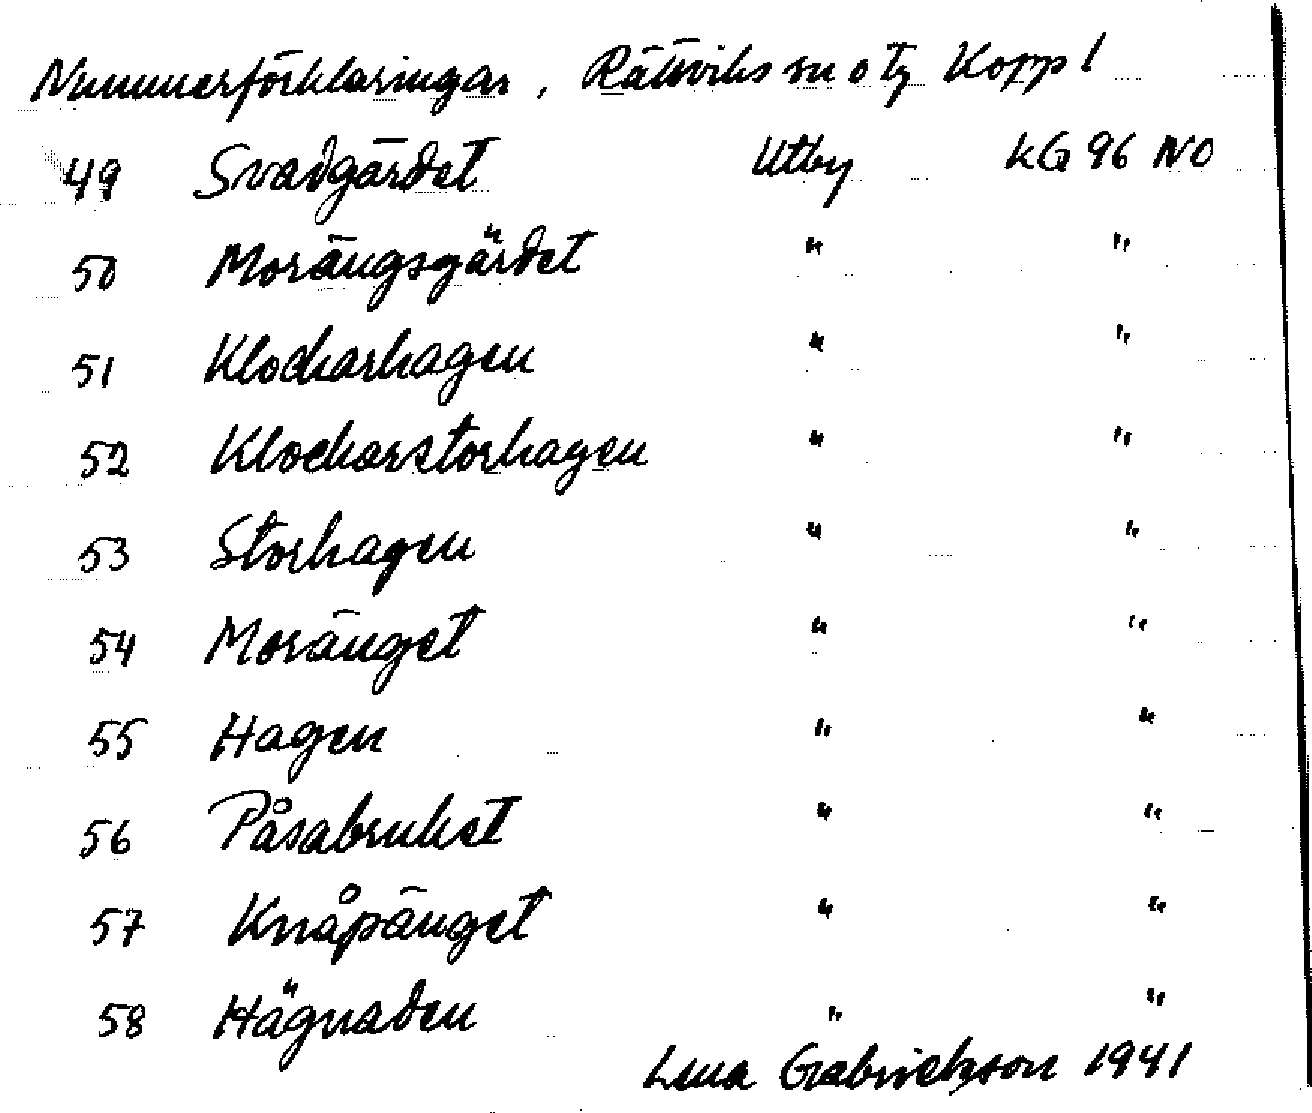 Nummerförklaringar, Rättviks sn o tg Koppl
49 Svadgärdet Utby KG 96 NO
50 Morängsgärdet " "
51 Klockarhagen " "
52 Klockarstorhagen " "
53 Storhagen " "
54 Moränget " "
55 Hagen " "
56 Påsabruket " "
57 Knåpänget " "
58 Hägnaden " "
Lena Gabrielsson 1941